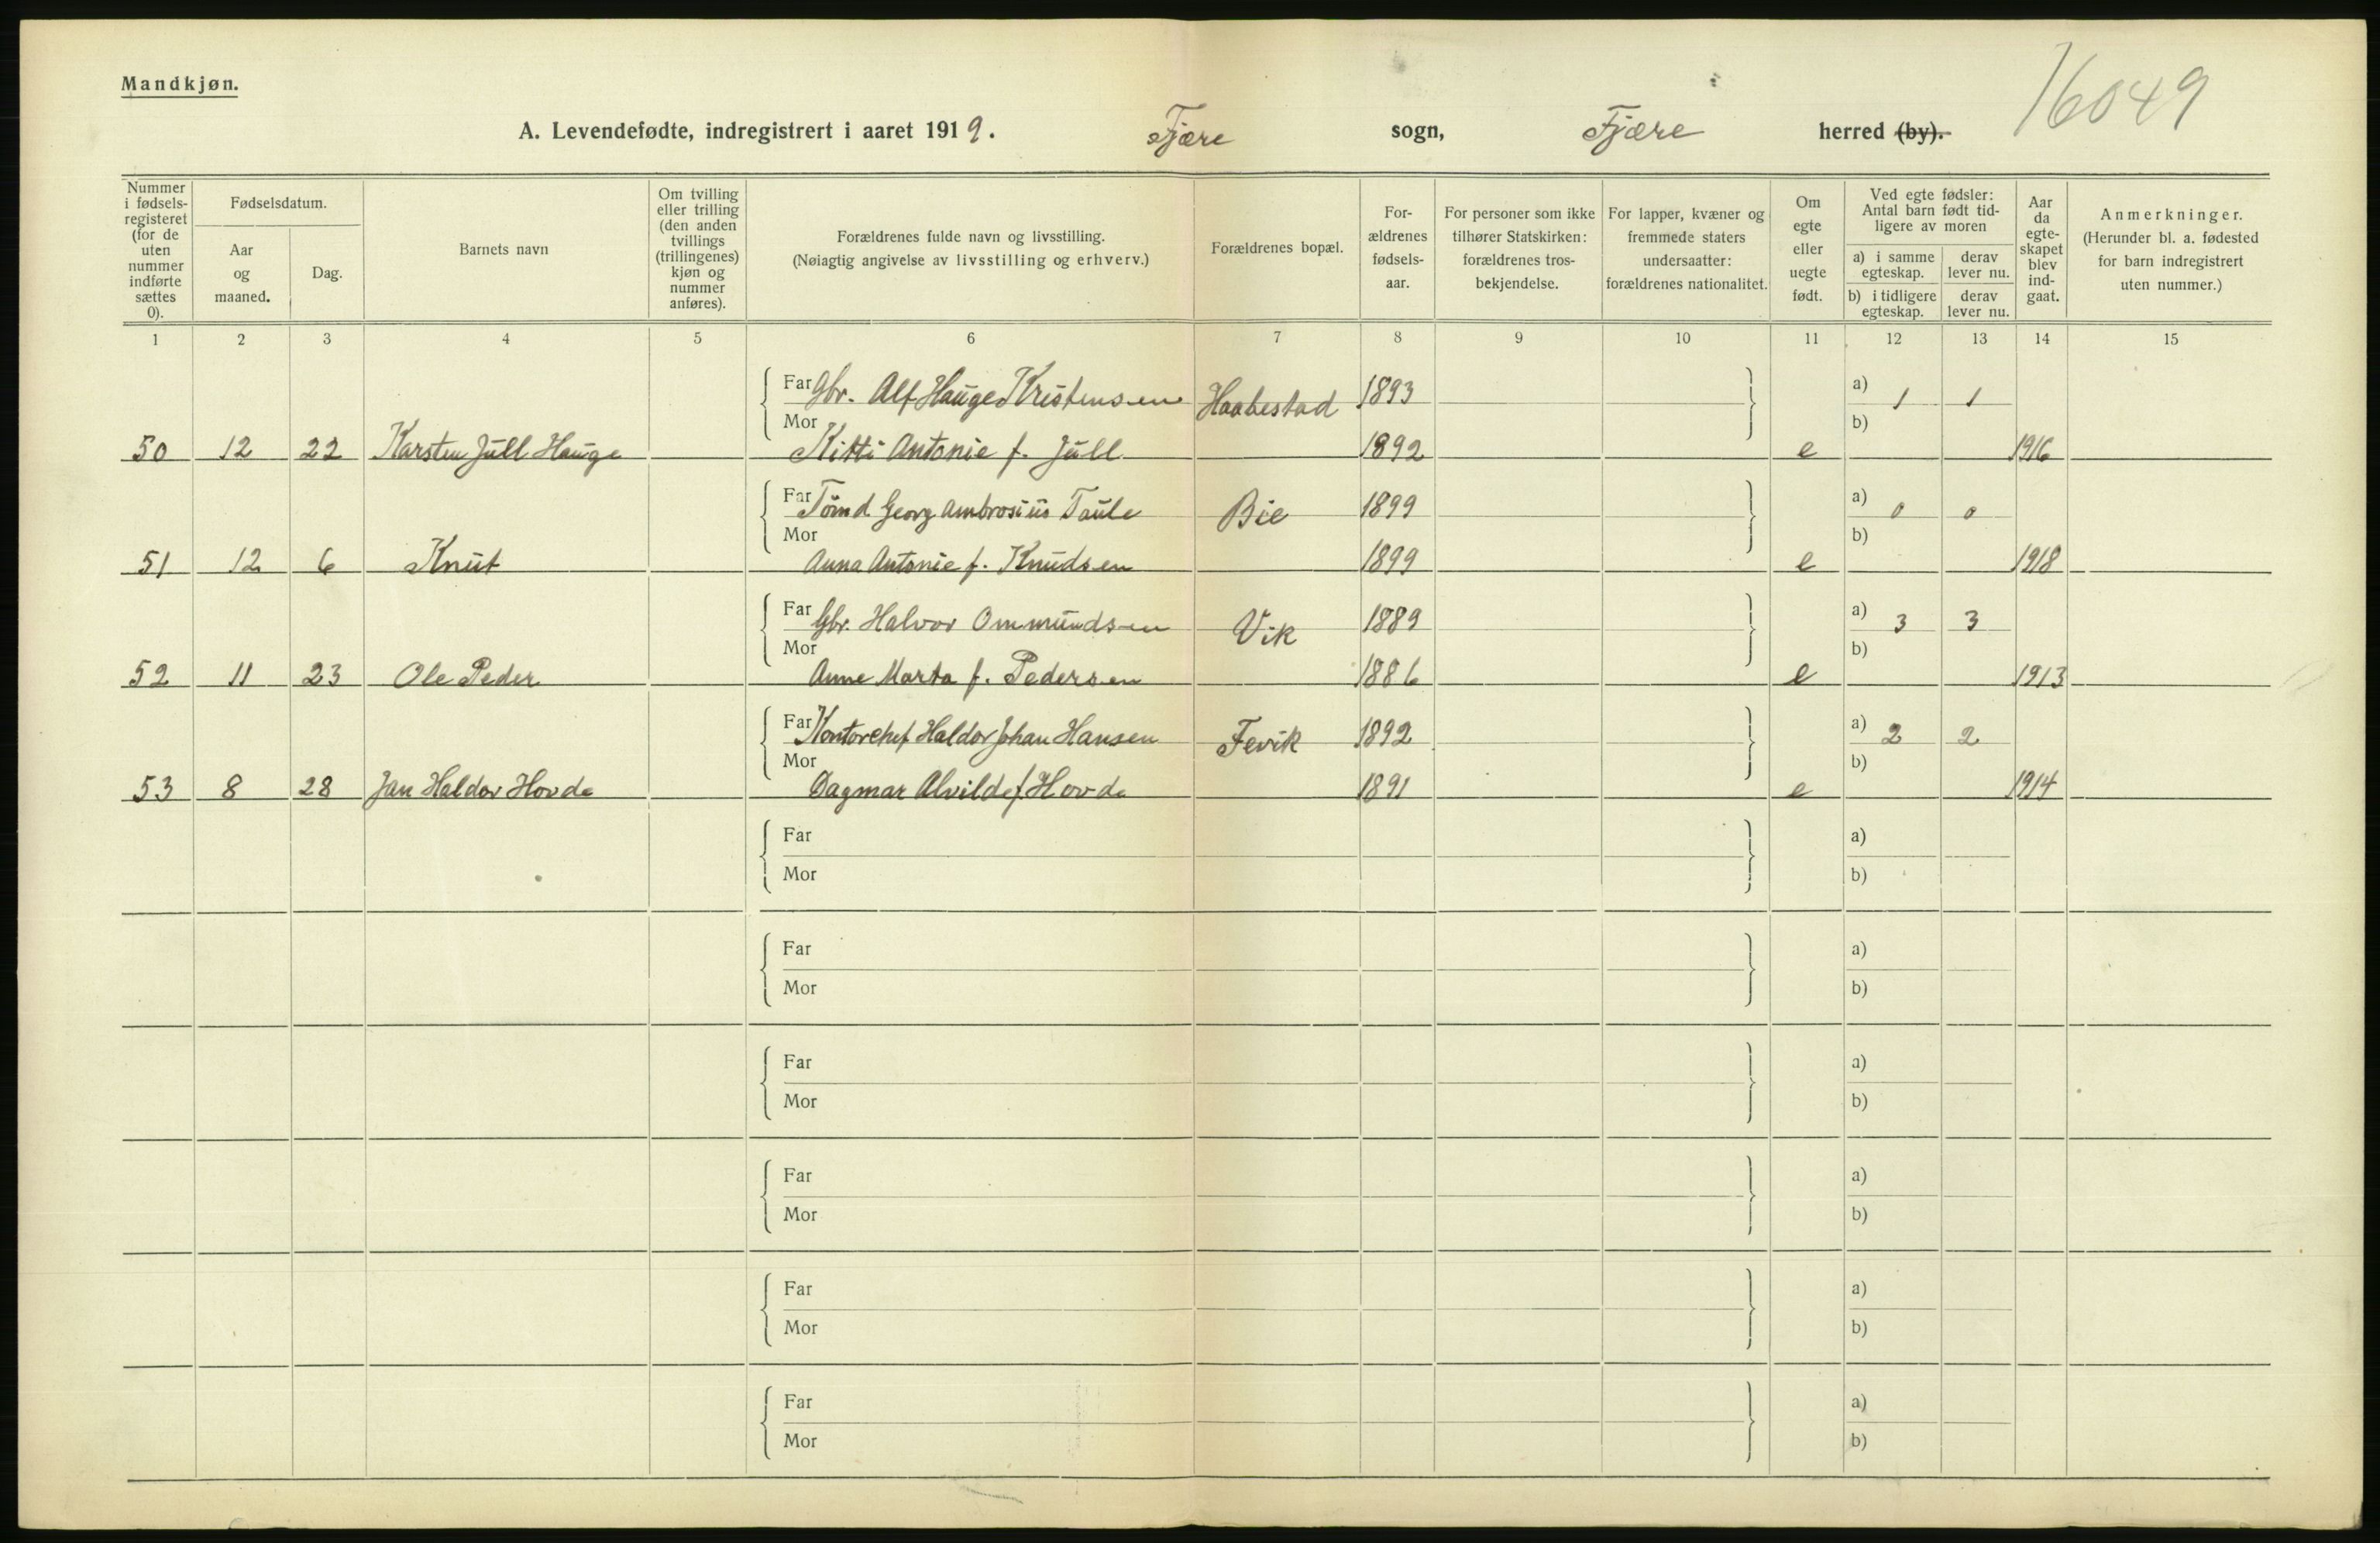 Mandkjøn.
16049
A. Levendefødte, indregistrert i aaret 1919. Fjære sogn, Fjære herred (by).
Nummer i fødselsregisteret (for de uten nummer indførte sættes 0).
Fødselsdatum.
Aar og maaned.
Dag.
Barnets navn
Om tvilling eller trilling (den anden tvillings (trillingenes) kjøn og nummer anføres).
Forældrenes fulde navn og livsstilling.
(Nøiagtig angivelse av livsstilling og erhverv.)
Forældrenes bopæl.
For-ældrenes fødsels-aar.
For personer som ikke tilhører Statskirken: forældrenes tros-bekjendelse.
For lapper, kvæner og fremmede staters undersaatter: forældrenes nationalitet.
Om egte eller uegte født.
Ved egte fødsler: Antal barn født tid-ligere av moren
a) i samme egteskap.
derav lever nu.
b) i tidligere egteskap.
derav lever nu.
Aar da egte-skapet blev ind-gaat.
Anmerkninger.
(Herunder bl. a. fødested for barn indregistrert uten nummer.)
1 2 3 4 5 6 7 8 9 10 11 12 13 14 15
Far Gbr. Alf Hauge Kristensen Haabestad 1893 a) 1 1
Mor b)
50 12 22 Karsten Jull Hauge Kitti Antonie f. Jull 1892 e 1916
Far Tømd Georg Ambrosius Taule Bie 1899 a) 0 0
Mor b)
51 12 6 Knut Anna Antonie f. Knudsen 1899 e 1918
Far Gbr. Halvor Ommundsen Vik 1889 a) 3 3
Mor b)
52 11 23 Ole Peder Anne Marta f. Pedersen 1886 e 1913
Far Kontorchef Haldor Johan Hansen Fevik 1892 a) 2 2
Mor b)
53 8 28 Jan Haldor Hovde Dagmar Alvilde f. Hovde 1891 e 1914
Far a)
Mor b)
Far a)
Mor b)
Far a)
Mor b)
Far a)
Mor b)
Far a)
Mor b)
Far a)
Mor b)